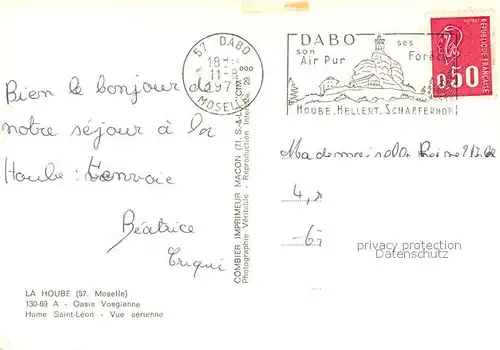 57 DABO
18 H
11-
197
MOSELLE
DABO
son
Air Pur
ses
Forêts
HOUBE. HELLERT. SCHAEFERHOF
0,50
Bien le bonjour de
notre séjour à la
Hoube.
Béatrice
COMBIER IMPRIMEUR MACON (71. S.-&-L.) CIM
Photographie Véritable - Reproduction Interdite. 29.
Mademoiselle
4, r
-67
privacy protection
Datenschutz
LA HOUBE (57. Moselle)
130-69 A - Oasis Vosgienne
Home Saint-Léon - Vue aérienne